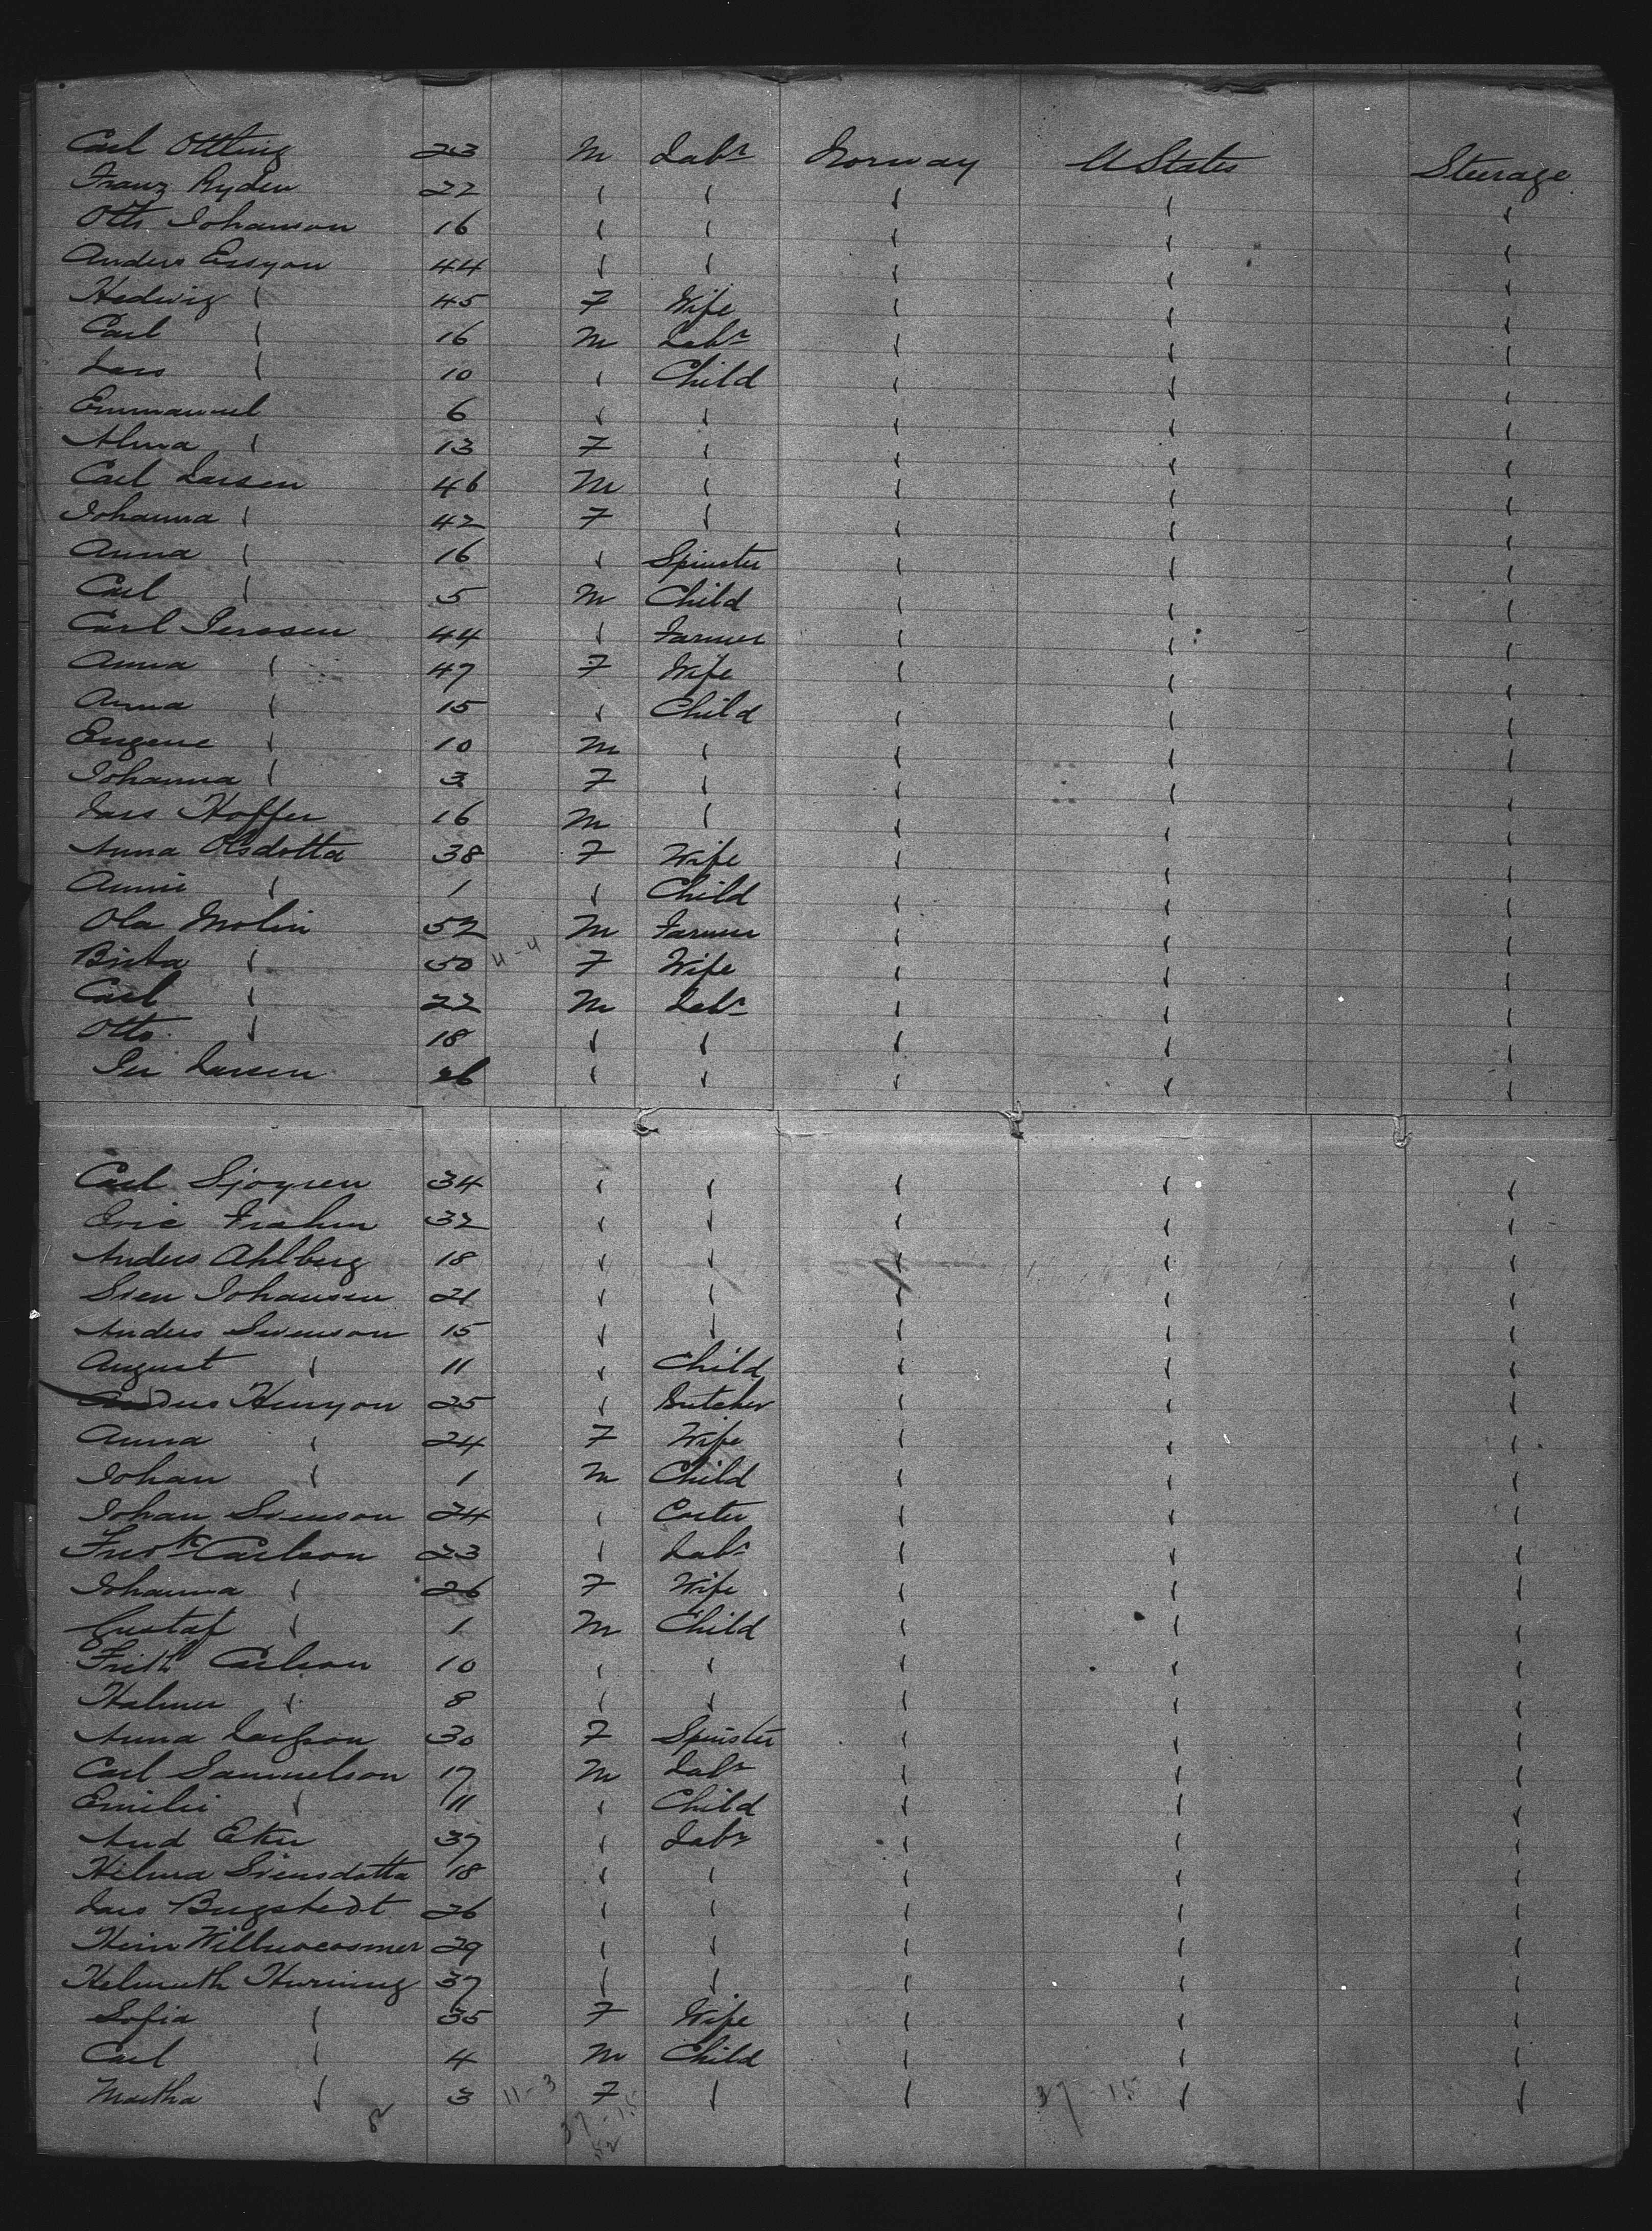 Carl Ottling 23 M Labr Norway U States Steerage
Franz Ryden 22 " " " " "
Otto Johanson 16 " " " " "
Anders Ersson 44 " " " " "
Hedwig " 45 F Wife " " "
Carl " 16 M Labr " " "
Lars " 10 " Child " " "
Emmanuel 6 " " " " "
Alma " 13 F " " " "
Carl Larsen 46 M " " " "
Johanna " 42 F " " " "
Anna " 16 " Spinster " " "
Carl " 5 M Child " " "
Carl 44 " Farmer " " "
Anna " 47 F Wife " " "
Anna " 15 " Child " " "
Eugene " 10 M " " " "
Johanna " 3 F " " " "
Lars Hoffer 16 M " " " "
Anna Olsdotta 38 F Wife " " "
Annie " 1 " Child " " "
Ola Molin 52 M Farmer " " "
Brita " 50 4-4 F Wife " " "
Carl " 22 M Labr " " "
Otto " 18 " " " " "
Larsen 26 " " " " "
Carl Sjogren 34 " " " " "
Eric Frahm 32 " " " " "
Anders Ahlberg 18 " " " " "
Sven Johansen 21 " " " " "
Anders Svenson 15 " " " " "
August " 11 " Child " " "
Anders 25 " Butcher " " "
Anna " 24 F Wife " " "
Johan " 1 M Child " " "
Johan Svenson 24 " " " "
Fredk Carlson 23 " Labr " " "
Johanna " 26 F Wife " " "
Gustaf " 1 M Child " " "
Carlson 10 " " " " "
Halmer " 8 " " " " "
Anna Larsson 30 F Spinster " " "
Carl Samuelson 17 M Labr " " "
Emilie " 11 " Child " " "
And 37 " Labr " " "
Hilma Svensdotta 18 " " " " "
Lars 26 " " " " "
29 " " " " "
Helmuth 37 " " " " "
Sofia " 35 F Wife " " "
Carl " 4 M Child " " "
Martha " 3 11-3 F " " 37-15 " "
37-15
52